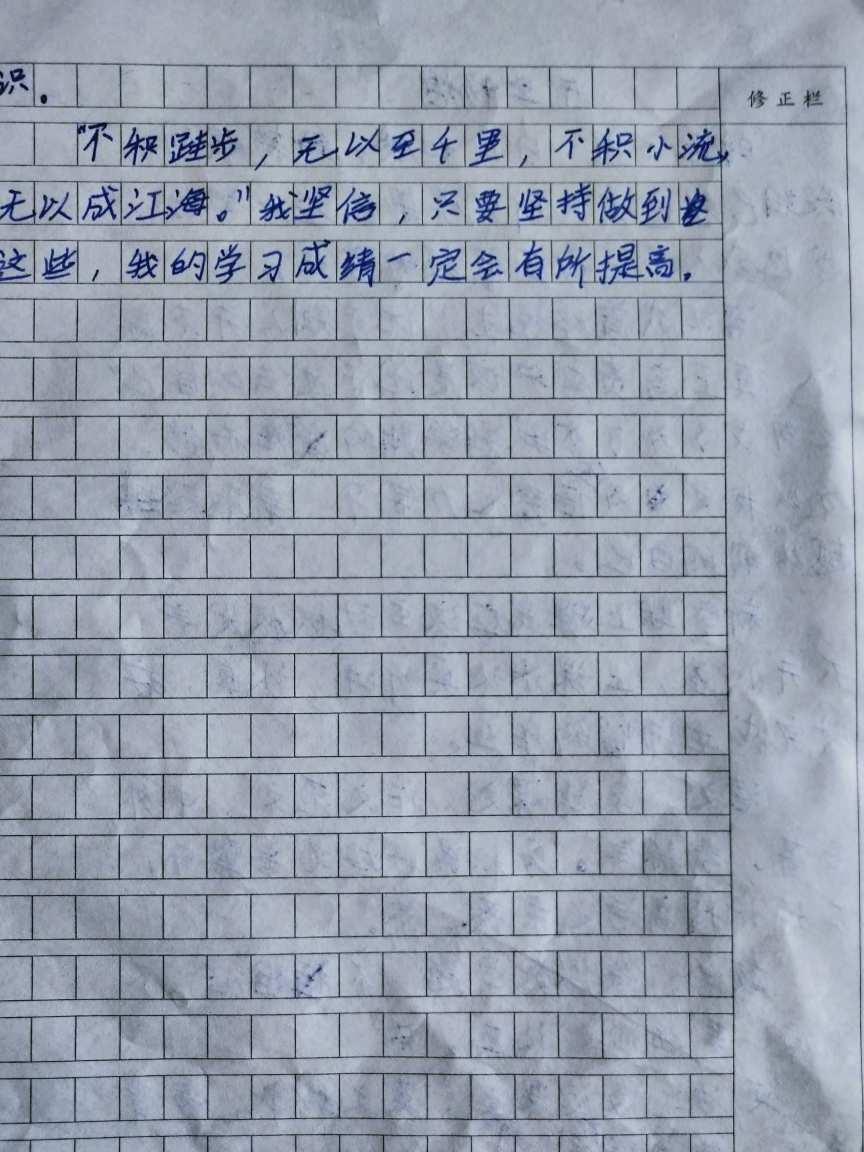 识。
修正栏
"不积跬步，无以至千里，不积小流，
无以成江海。"我坚信，只要坚持做到
这些，我的学习成绩一定会有所提高。